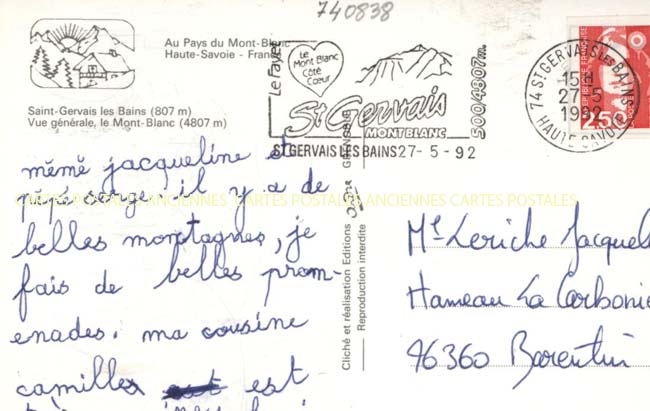 740838
Au Pays du Mont-Blanc
Haute-Savoie - France
Saint-Gervais les Bains (807 m)
Vue générale, le Mont-Blanc (4807 m)
Le Fayet
Le
Mont Blanc
Côté
Cœur
St Gervais
MONT BLANC
500/4807m.
ST GERVAIS LES BAINS 27- 5 - 92
74 ST GERVAIS LES BAINS
15H
27-5
1992
HAUTE SAVOIE
2,50
mémé jacqueline et
pépé serge, il y a de
belles montagnes, je
fais de belles prom-
enades. ma cousine
camille est
CARTES POSTALES ANCIENNES CARTES POSTALES ANCIENNES CARTES POSTALES
Cliché et réalisation Editions
GRENOBLE
Reproduction interdite
Leriche Jacquel
Hameau La Carbonie
Barentin